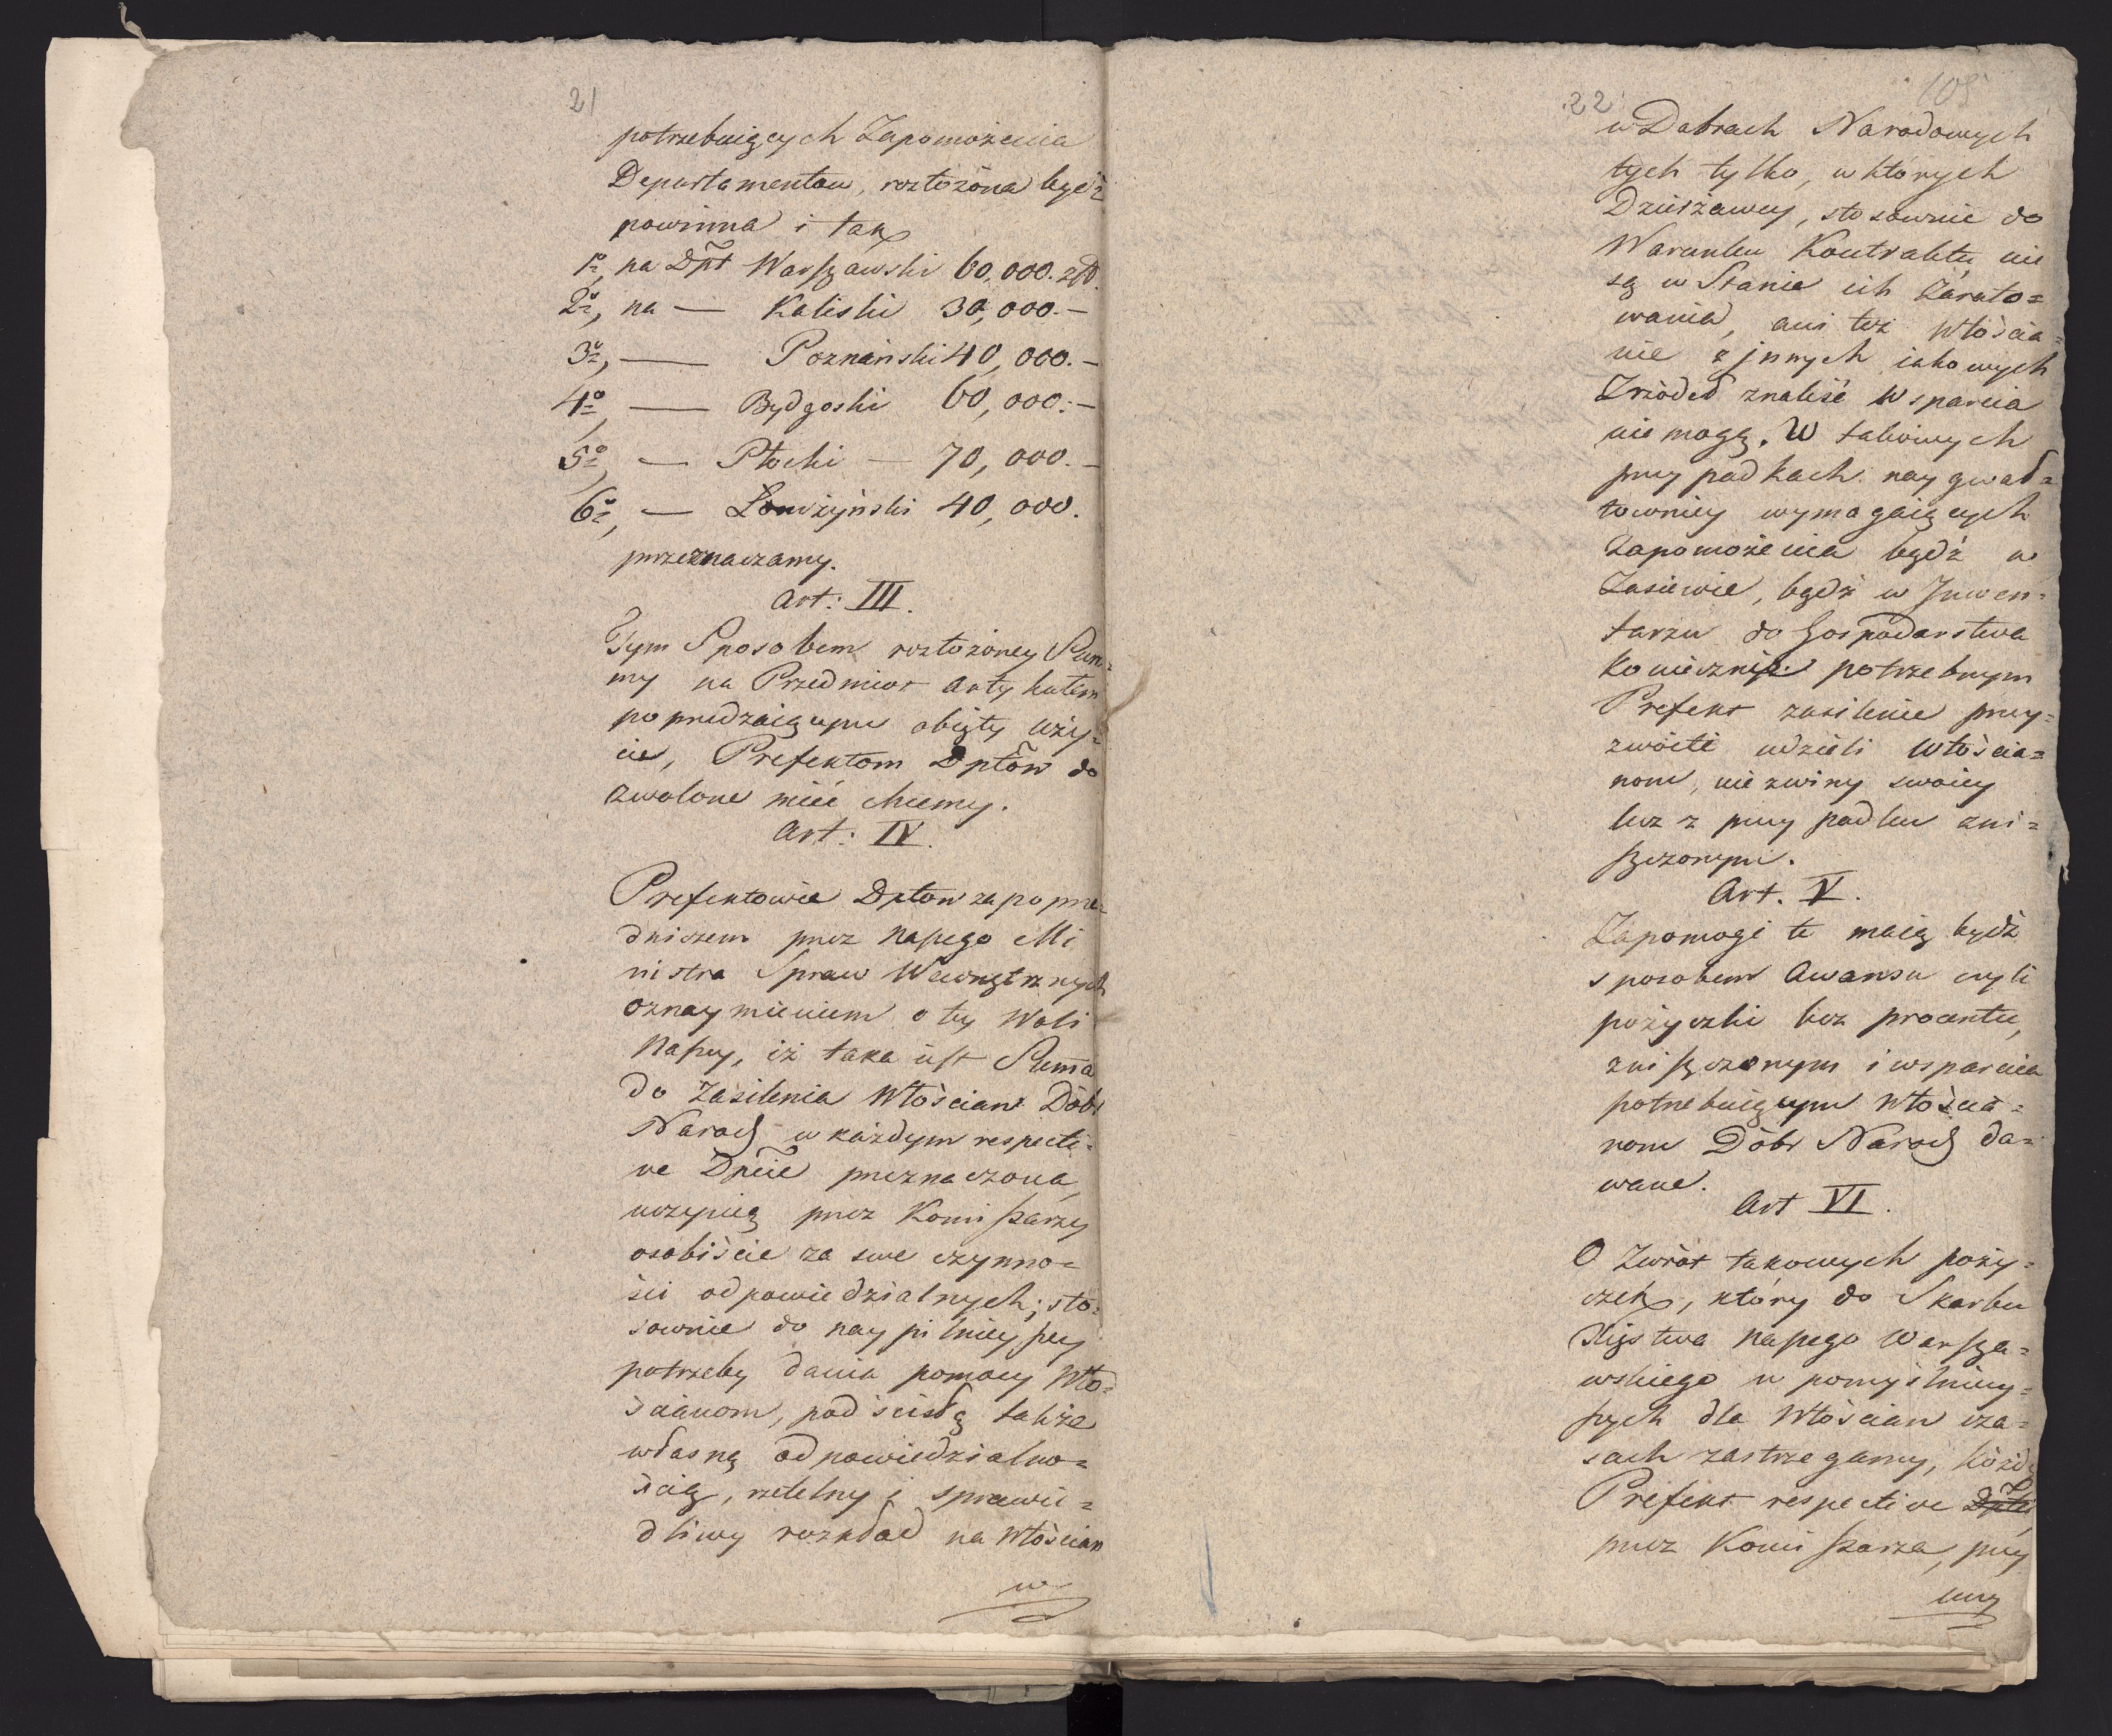 21
potrzebuiących Zapomożenia
Departamentow, rozłożona bydź
powinna i tak
1o, na Dpt Warszawski 60,000. złt.
2o, na — Kaliski 30,000.—
3o, — Poznański 40,000.—
4o, — Bydgoski 60,000:—
5o, — Płocki — 70,000.—
6o, — Łomżyński 40,000.
przeznaczamy.
Art: III.
Tym Sposobem rozłożoney Sum=
my na Przedmiot Artykułem
poprzedzaiącym obięty uży=
cie, Prefektom Dptów do
zwolone mieć chcemy.
Art: IV.
Prefektowie Dptow za poprze=
dniczem przez Naszego Mi
nistra Spraw Wewnętrznych
oznaymieniem o tey Woli
Naszey, iż taka iest Summa
do Zasilenia Włościan Dóbr
Narod w każdym respecti=
ve Dpcie przeznaczona,
uczynią przez Kommissarzy
osobiście za swe czynno=
ści odpowiedzialnych; sto=
sownie do naypilnieyszey
potrzeby dania pomocy Wło=
ścianom, pod ścisłą także
własną odpowiedzialno=
ścią, rzetelny i sprawie=
dliwy rozkład na Włościan
w
22
105
w Dobrach Narodowych
tych tylko, w których
Dzierżawcy, stosownie do
Warunku Kontraktu nie
są w Stanie ich Zarato=
wania, ani też Włościa=
nie z jnnych iakowych
Zrzódeł znaleść Wsparcia
nie mogą. W takowych
przypadkach naygwał=
towniey wymagaiących
Zapomożenia bądź w
Zasiewie, bądź w Jnwen=
tarzu do Gospodarstwa
koniecznie potrzebnym
Prefekt zasilenie przy=
zwoite udzieli Włościa=
nom, nie z winy swoiey
lecz z przypadku zni=
szczonym.
Art. V.
Zapomogi te maią bydź
sposobem Awansu czyli
pożyczki bez procentu,
zniszczonym i wsparcia
potrzebuiącym Włościa=
nom Dóbr Narod da=
wane.
Art VI.
O Zwrót takowych poży=
czek, który do Skarbu
Xięstwa Naszego Warsza=
wskiego w pomyślniey=
szych dla Włościan cza=
sach zastrzegamy, każdy
Prefekt respective Dptu
przez Kommissarza, przy